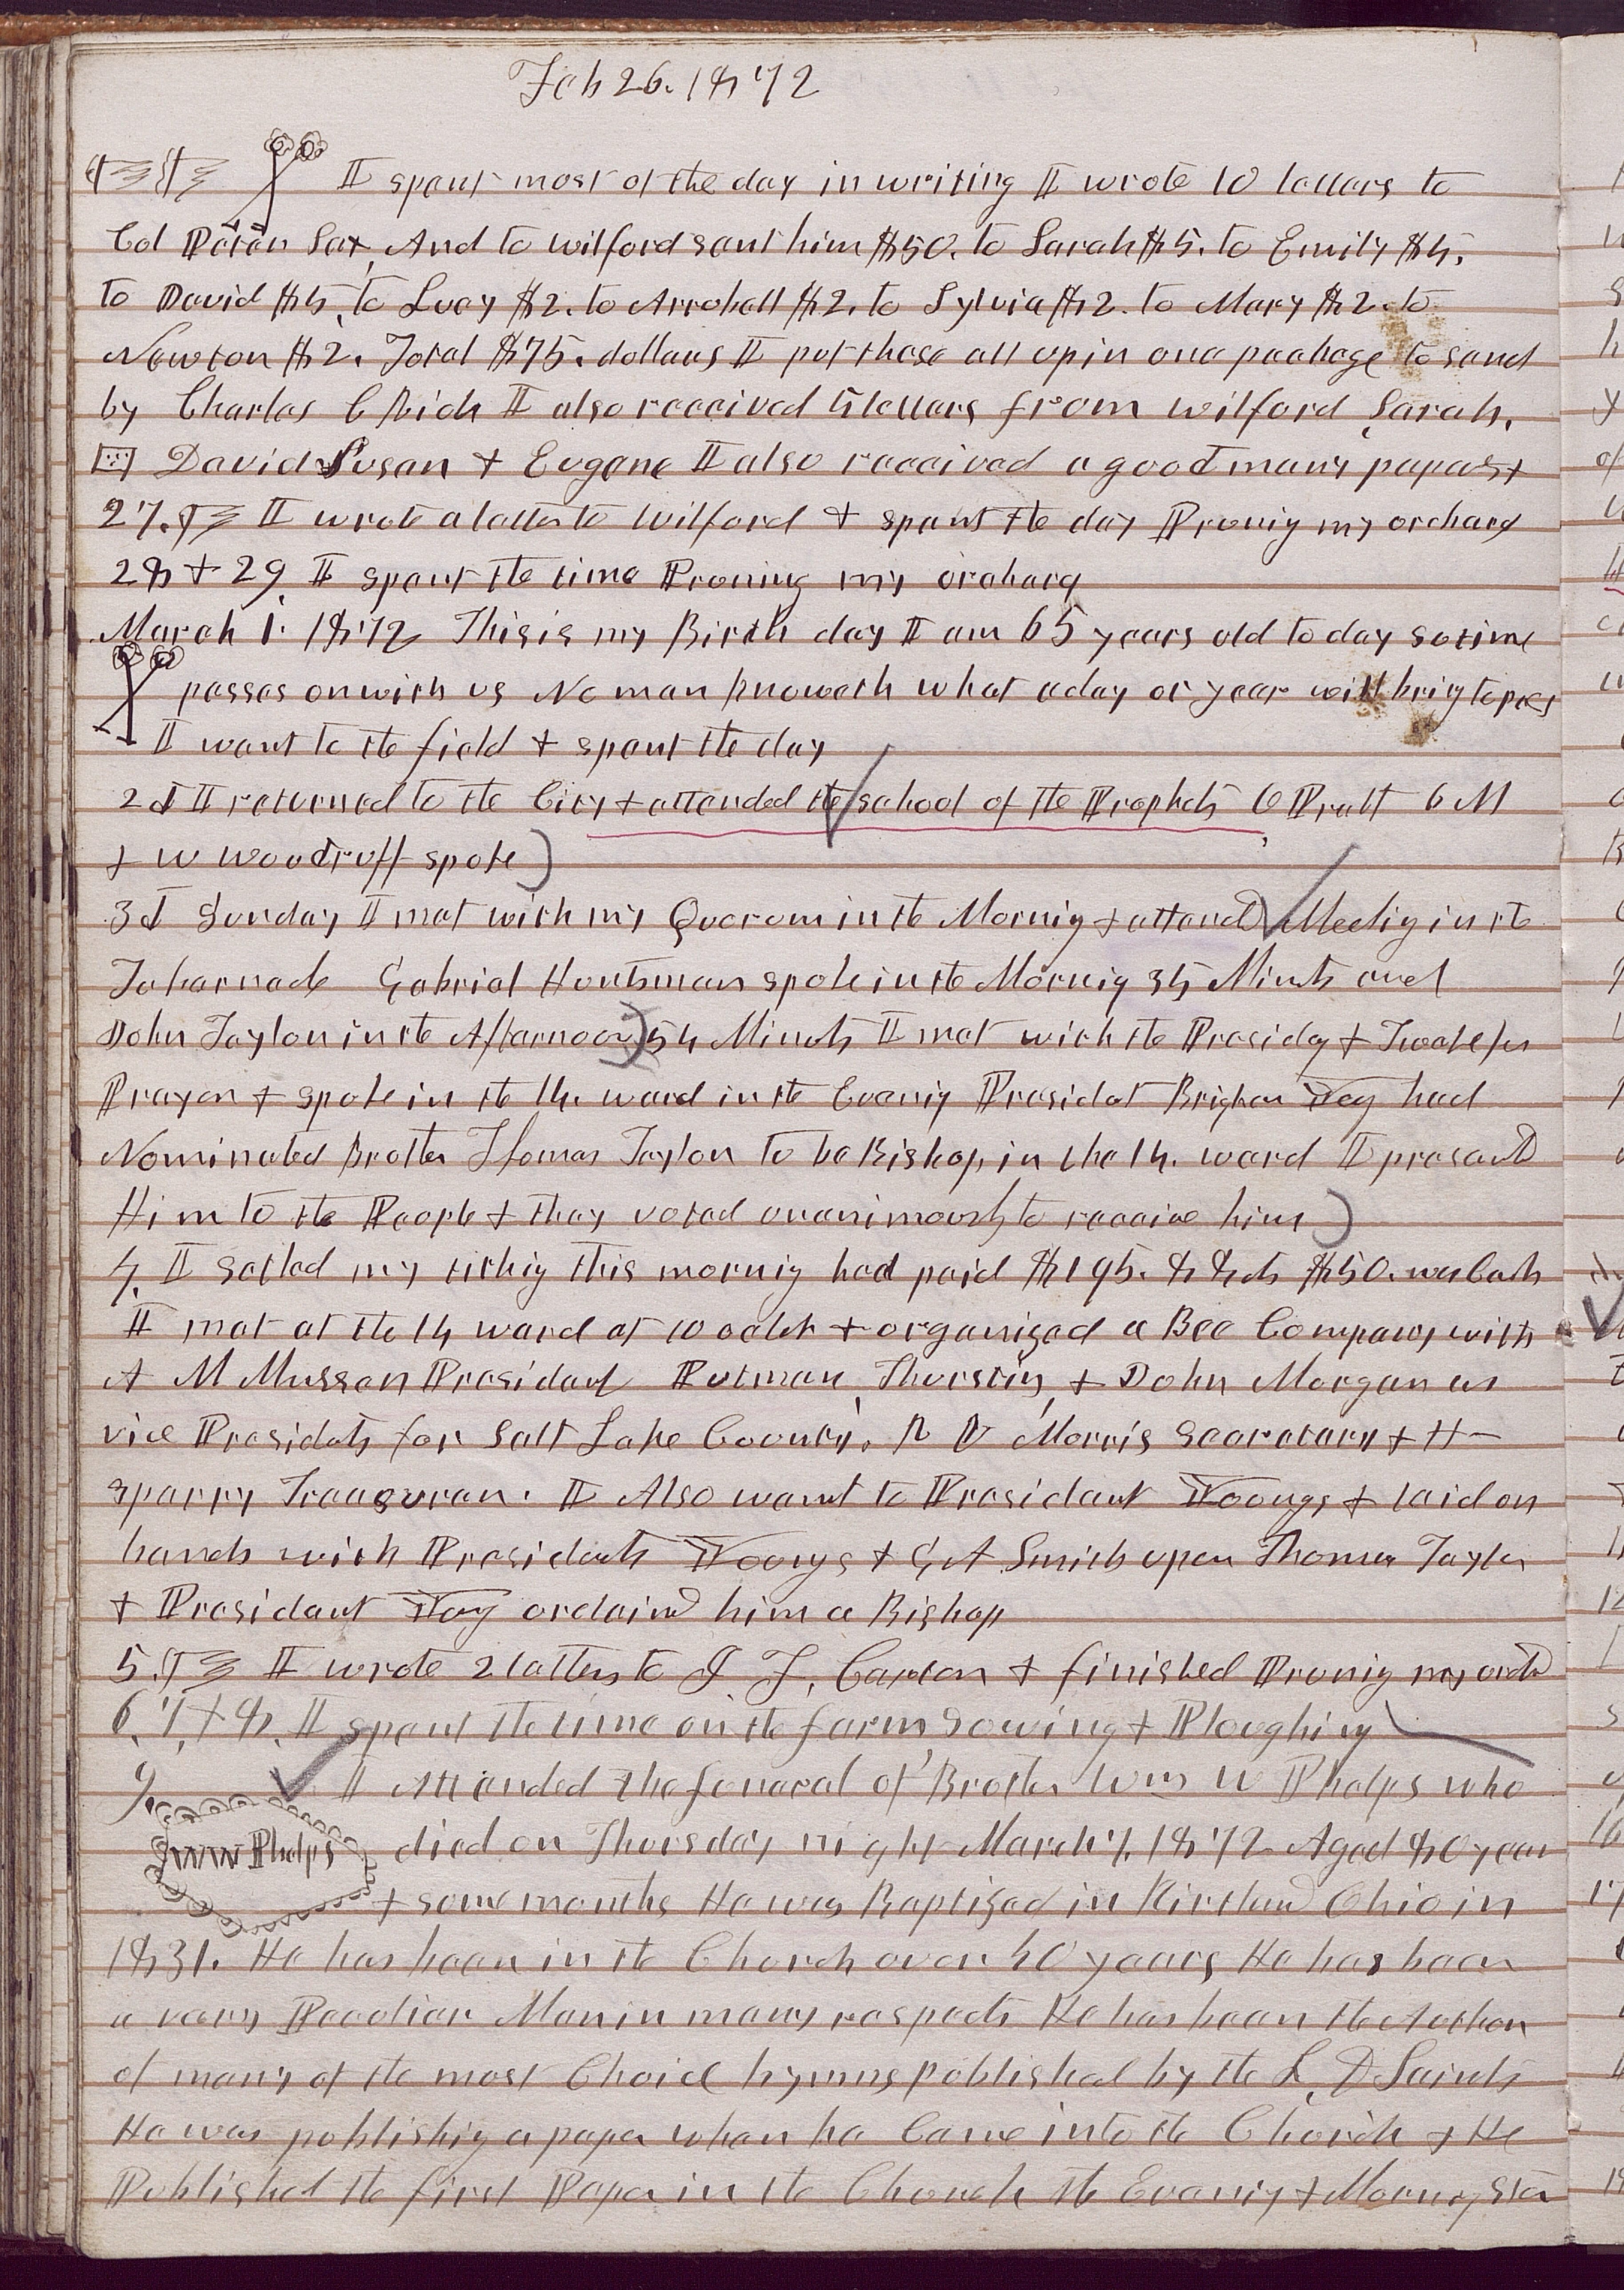 Feb 26. 1872
I spent most of the day in writing I wrote 10 letters to
Col Peter Sax, And to Wilford sent him $50. to Sarah $5. to Emily $5.
to David $5, to Lucy $2. to Arrobell $2. to Sylvia $2. to Mary $2. to
Newton $2. Total $75. dollars I put these all up in one package to send
by Charles C Rich I also received 5 letters from Wilford, Sarah,
David Susan & Eugene I also received a good many papers &
27. I wrote a letter to Wilford & spent the day Pruning my orchard
28 & 29. I spent the time Pruning my orchard
March 1. 1872 This is my Birth day I am 65 years old to day so time
passes on with us No man knoweth what a day or year will brig to pass
I went to the field & spent the day
2d I returned to the City & attended the school of the Prophets O Pratt G M
& W Woodruff spoke)
3d Sunday I met with my Quorum in the Mornig & attend Meetig in the
Tabernacle Gabriel Huntsman spoke in the Mornig 35 Minuts and
John Taylor in the Afternoon) 54 Minuts I met with the Presidcy & Twelve for
Prayer & spoke in the 14. ward in the Evenig Presidet Brigham Yog had
Nominated Brother Thomas Taylor to be Bishop in the 14. ward I presentd
Him to the People & they voted unanimously to receive him)
4. I setled my tithig this mornig had paid $195. & $50. was Cash
I met at the 14 ward at 10 oclok & organized a Bee Company with
A M Musser President Putman, Thurstin, & John Morgan as
vice Presidets for Salt Lake County. R V Morris Secretary & H
sparry Treasuran. I Also went to President Youngs & laid on
hands with Presidents Youngs & G A Smith upon Thomas Taylor
& President Yog ordaind him a Bishop
5. I wrote 2 letters to J F, Carton & finished Prunig my orchd
6, 7, & 8. I spent the time on the farm, Sowing & Ploughing
9. I Attended the funeral of Brother Wm W Phelps who
WW Phelps died on Thursday night March 7, 1872 Aged 80 year
& some months He was Baptized in Kirtland Ohio in
1831. He has been in the Church over 40 years He has been
a very Peculiar Man in many respects He has been the Author
of many of the most Choice hymns published by the L, D Saints
He was publishig a paper when he Came into the Church & He
Published the first Paper in the Church the Evenig & Mornig Star